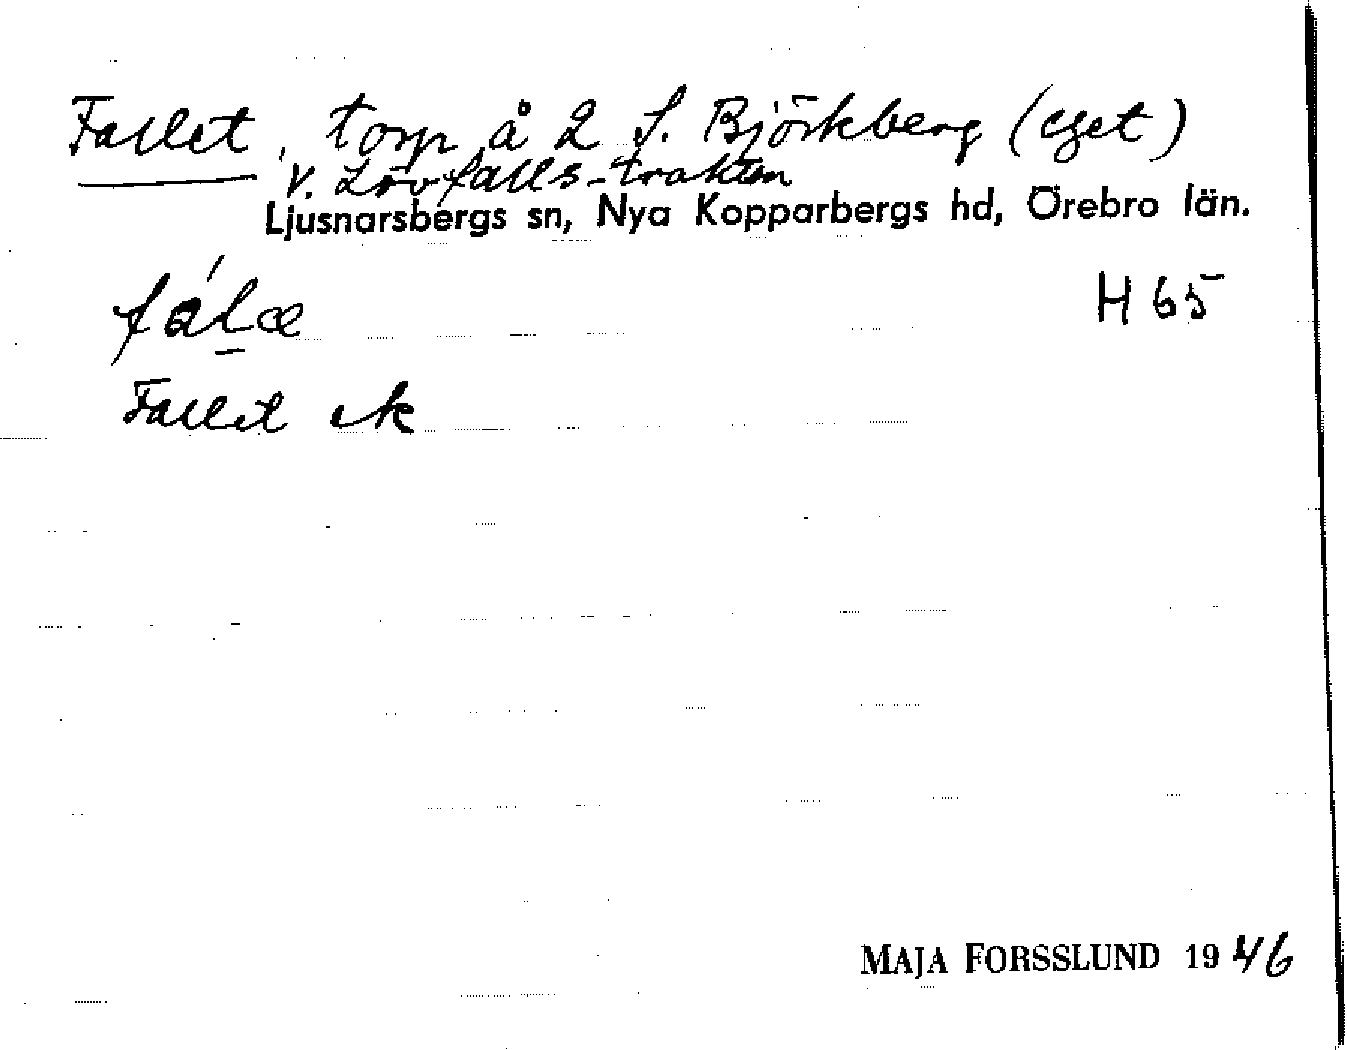 Fallet, torp å 2 S. Björkberg (eget)
V. Lövfalls-trakten
Ljusnarsbergs sn, Nya Kopparbergs hd, Örebro län.
fálæ
H 65
Fallet ek
MAJA FORSSLUND 1946